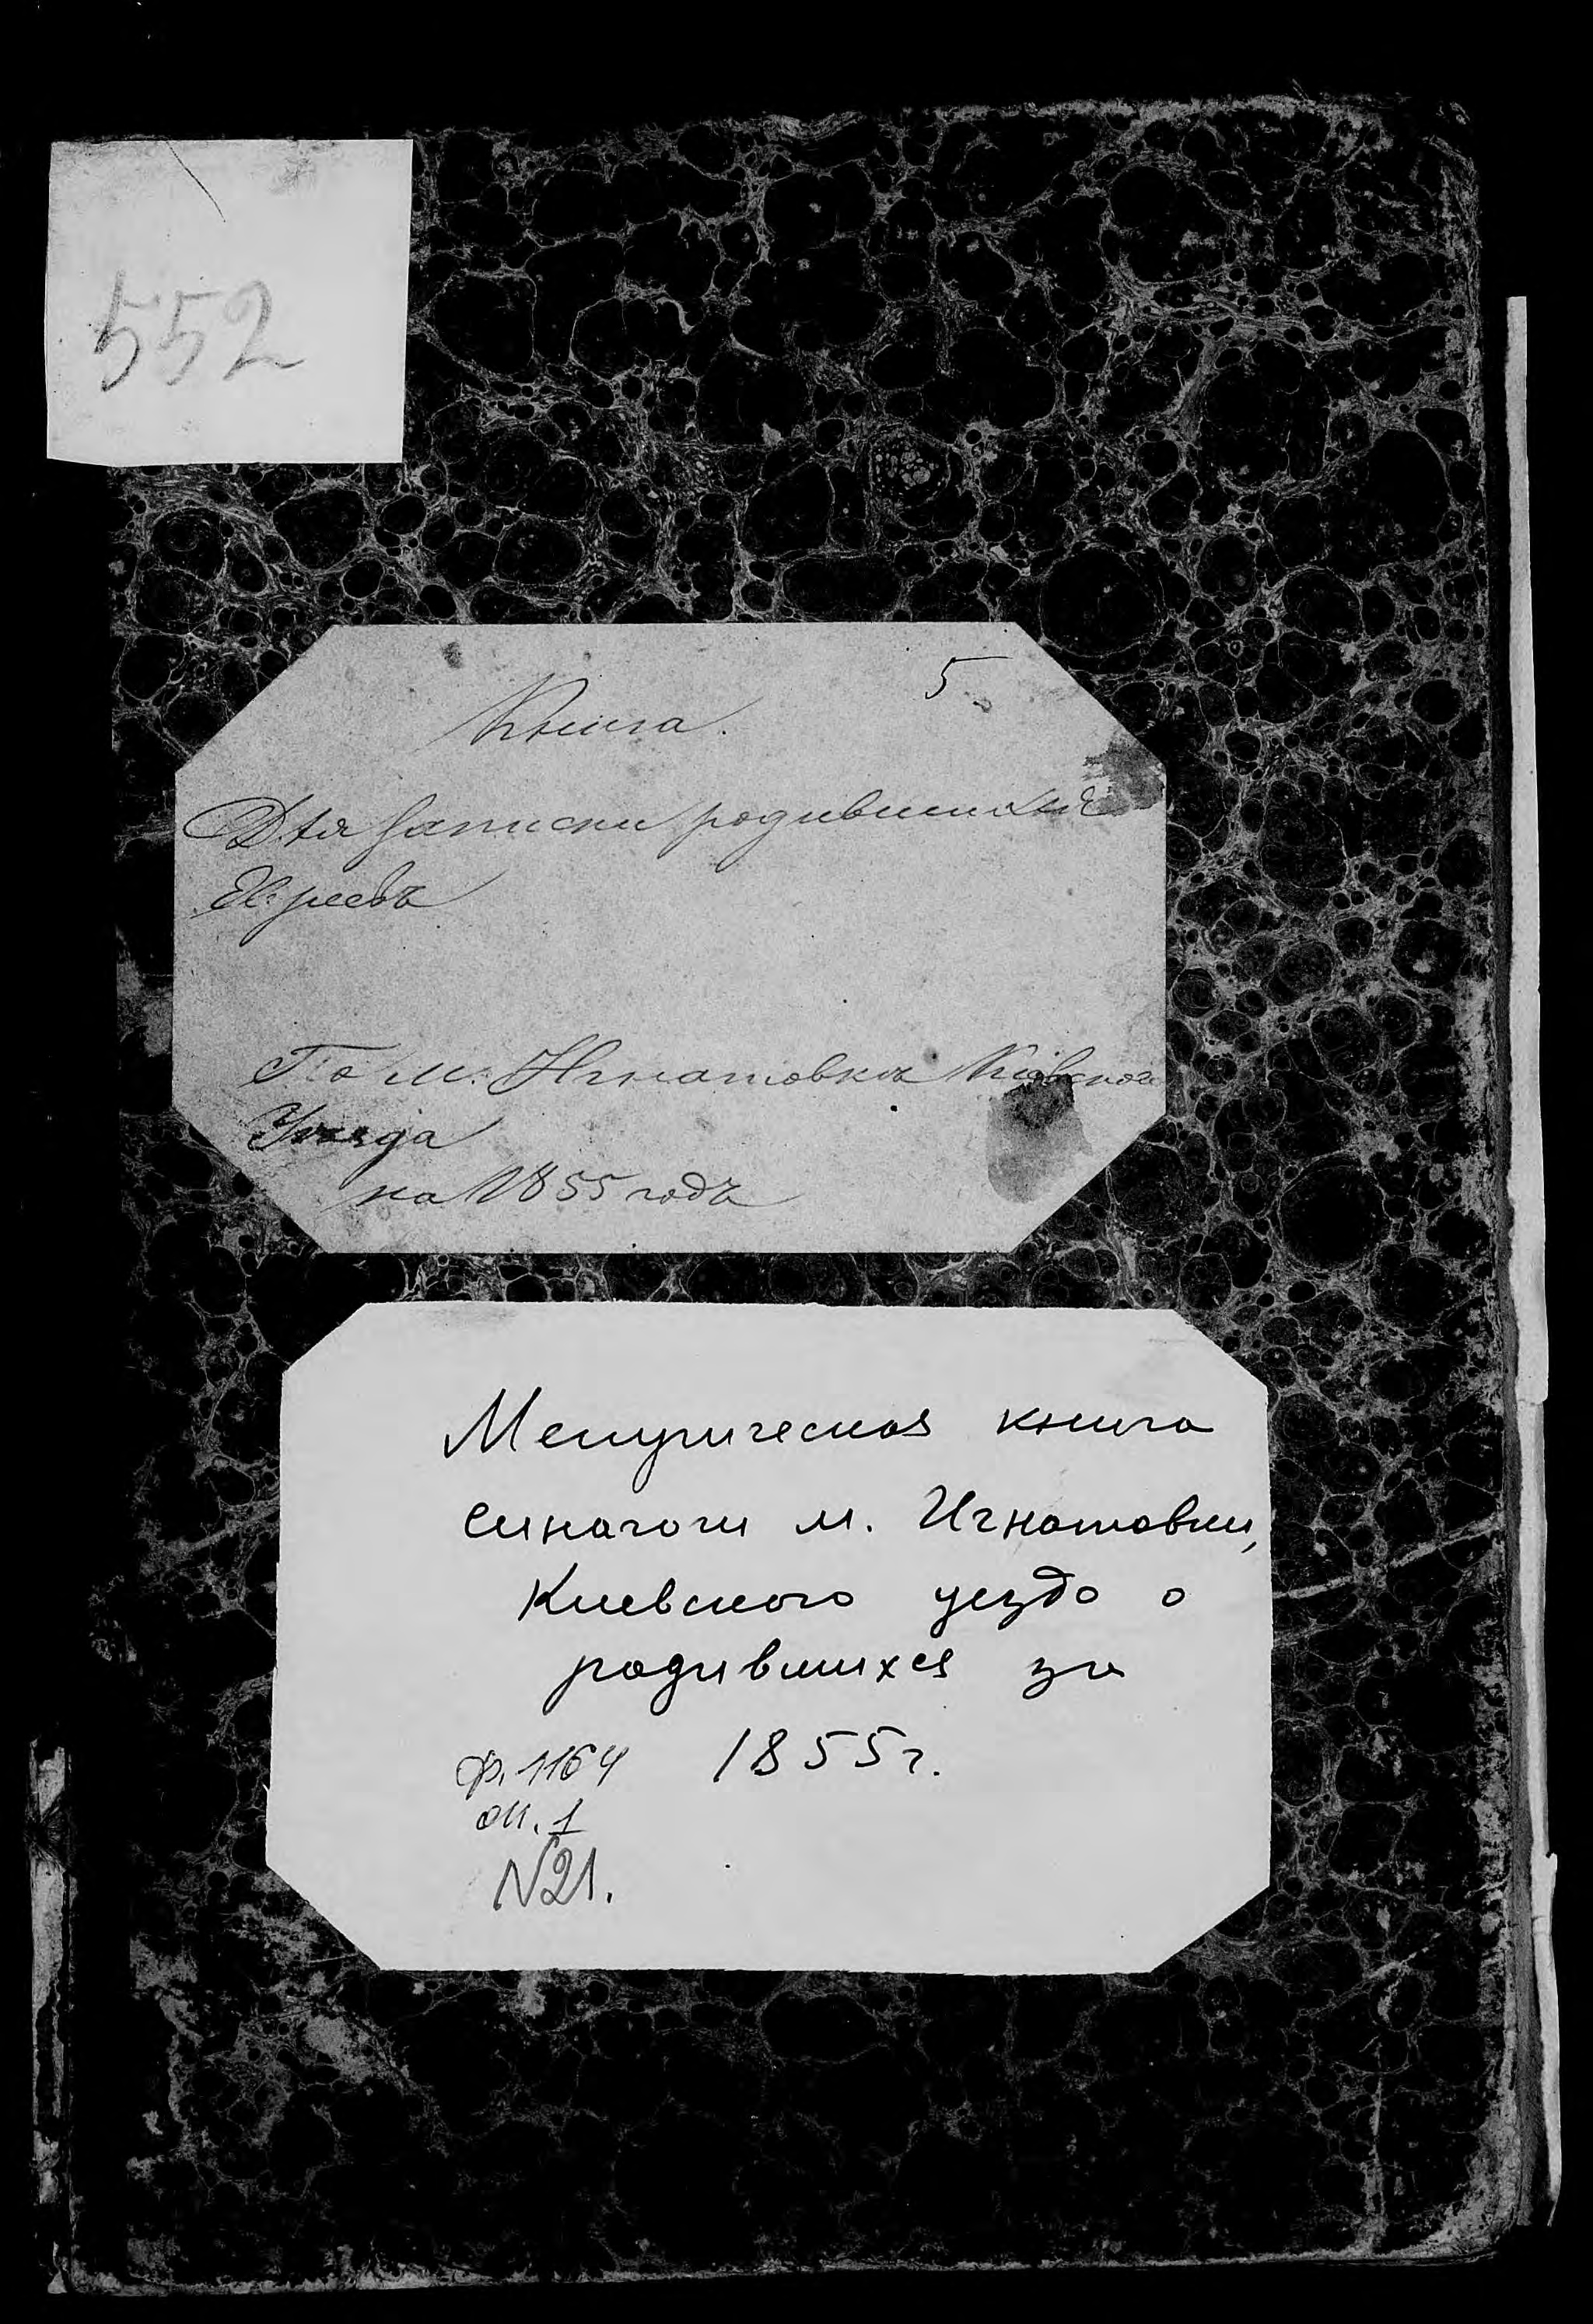 552
5
Книга.
Для записки родившихся
Евреевъ
По м: Игнатовка Кіевскога
Уезда
на 1855 годъ
Метрическая книга
синагоги м. Игнатовки,
Киевского уезда о
родившихся за
1855 г.
ф. 1164
оп. 1
№21.